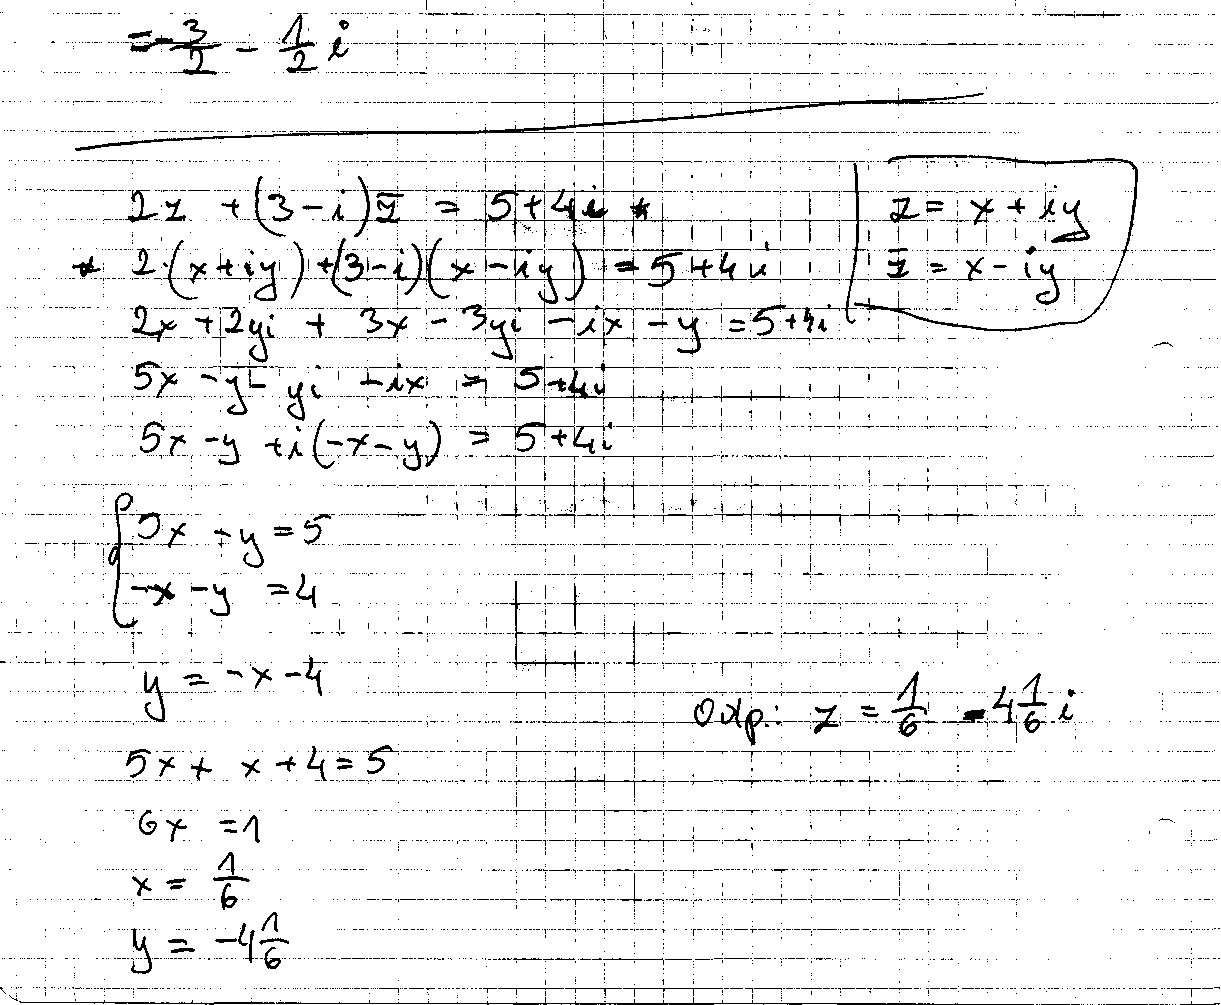 = -3/2 - 1/2 i
2z + (3-i)z̄ = 5+4i *
* 2·(x+iy)+(3-i)(x-iy) = 5+4i
z = x+iy
z̄ = x-iy
2x+2yi + 3x - 3yi - ix - y = 5+4i
5x -y- yi -ix = 5+4i
5x -y +i(-x-y) = 5+4i
{5x -y = 5
-x -y = 4
y = -x-4
5x+ x+4=5
6x =1
x = 1/6
y = -4 1/6
Odp.: z = 1/6 - 4 1/6 i